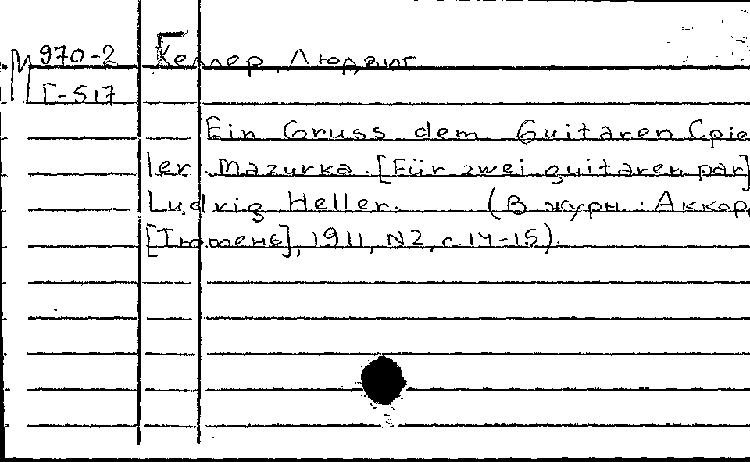 М 970-2 Келлер, Людвиг
Г-517
Ein Gruss dem Guitaren Spie
ler. Mazurka. [Für zwei guitaren par]
Ludvig Heller. (В журн.: Аккорд
[Тюмень], 1911, N2, с. 14-15).